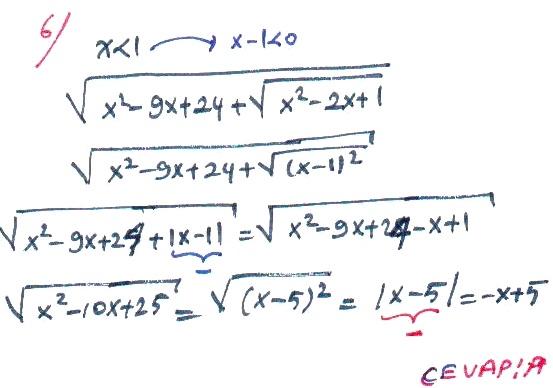 6/
x<1 → x-1<0
√(x²-9x+24+√(x²-2x+1))
√(x²-9x+24+√((x-1)²))
√(x²-9x+24+|x-1|) = √(x²-9x+24-x+1)
-
√(x²-10x+25) = √((x-5)²) = |x-5| = -x+5
-
CEVAP:A